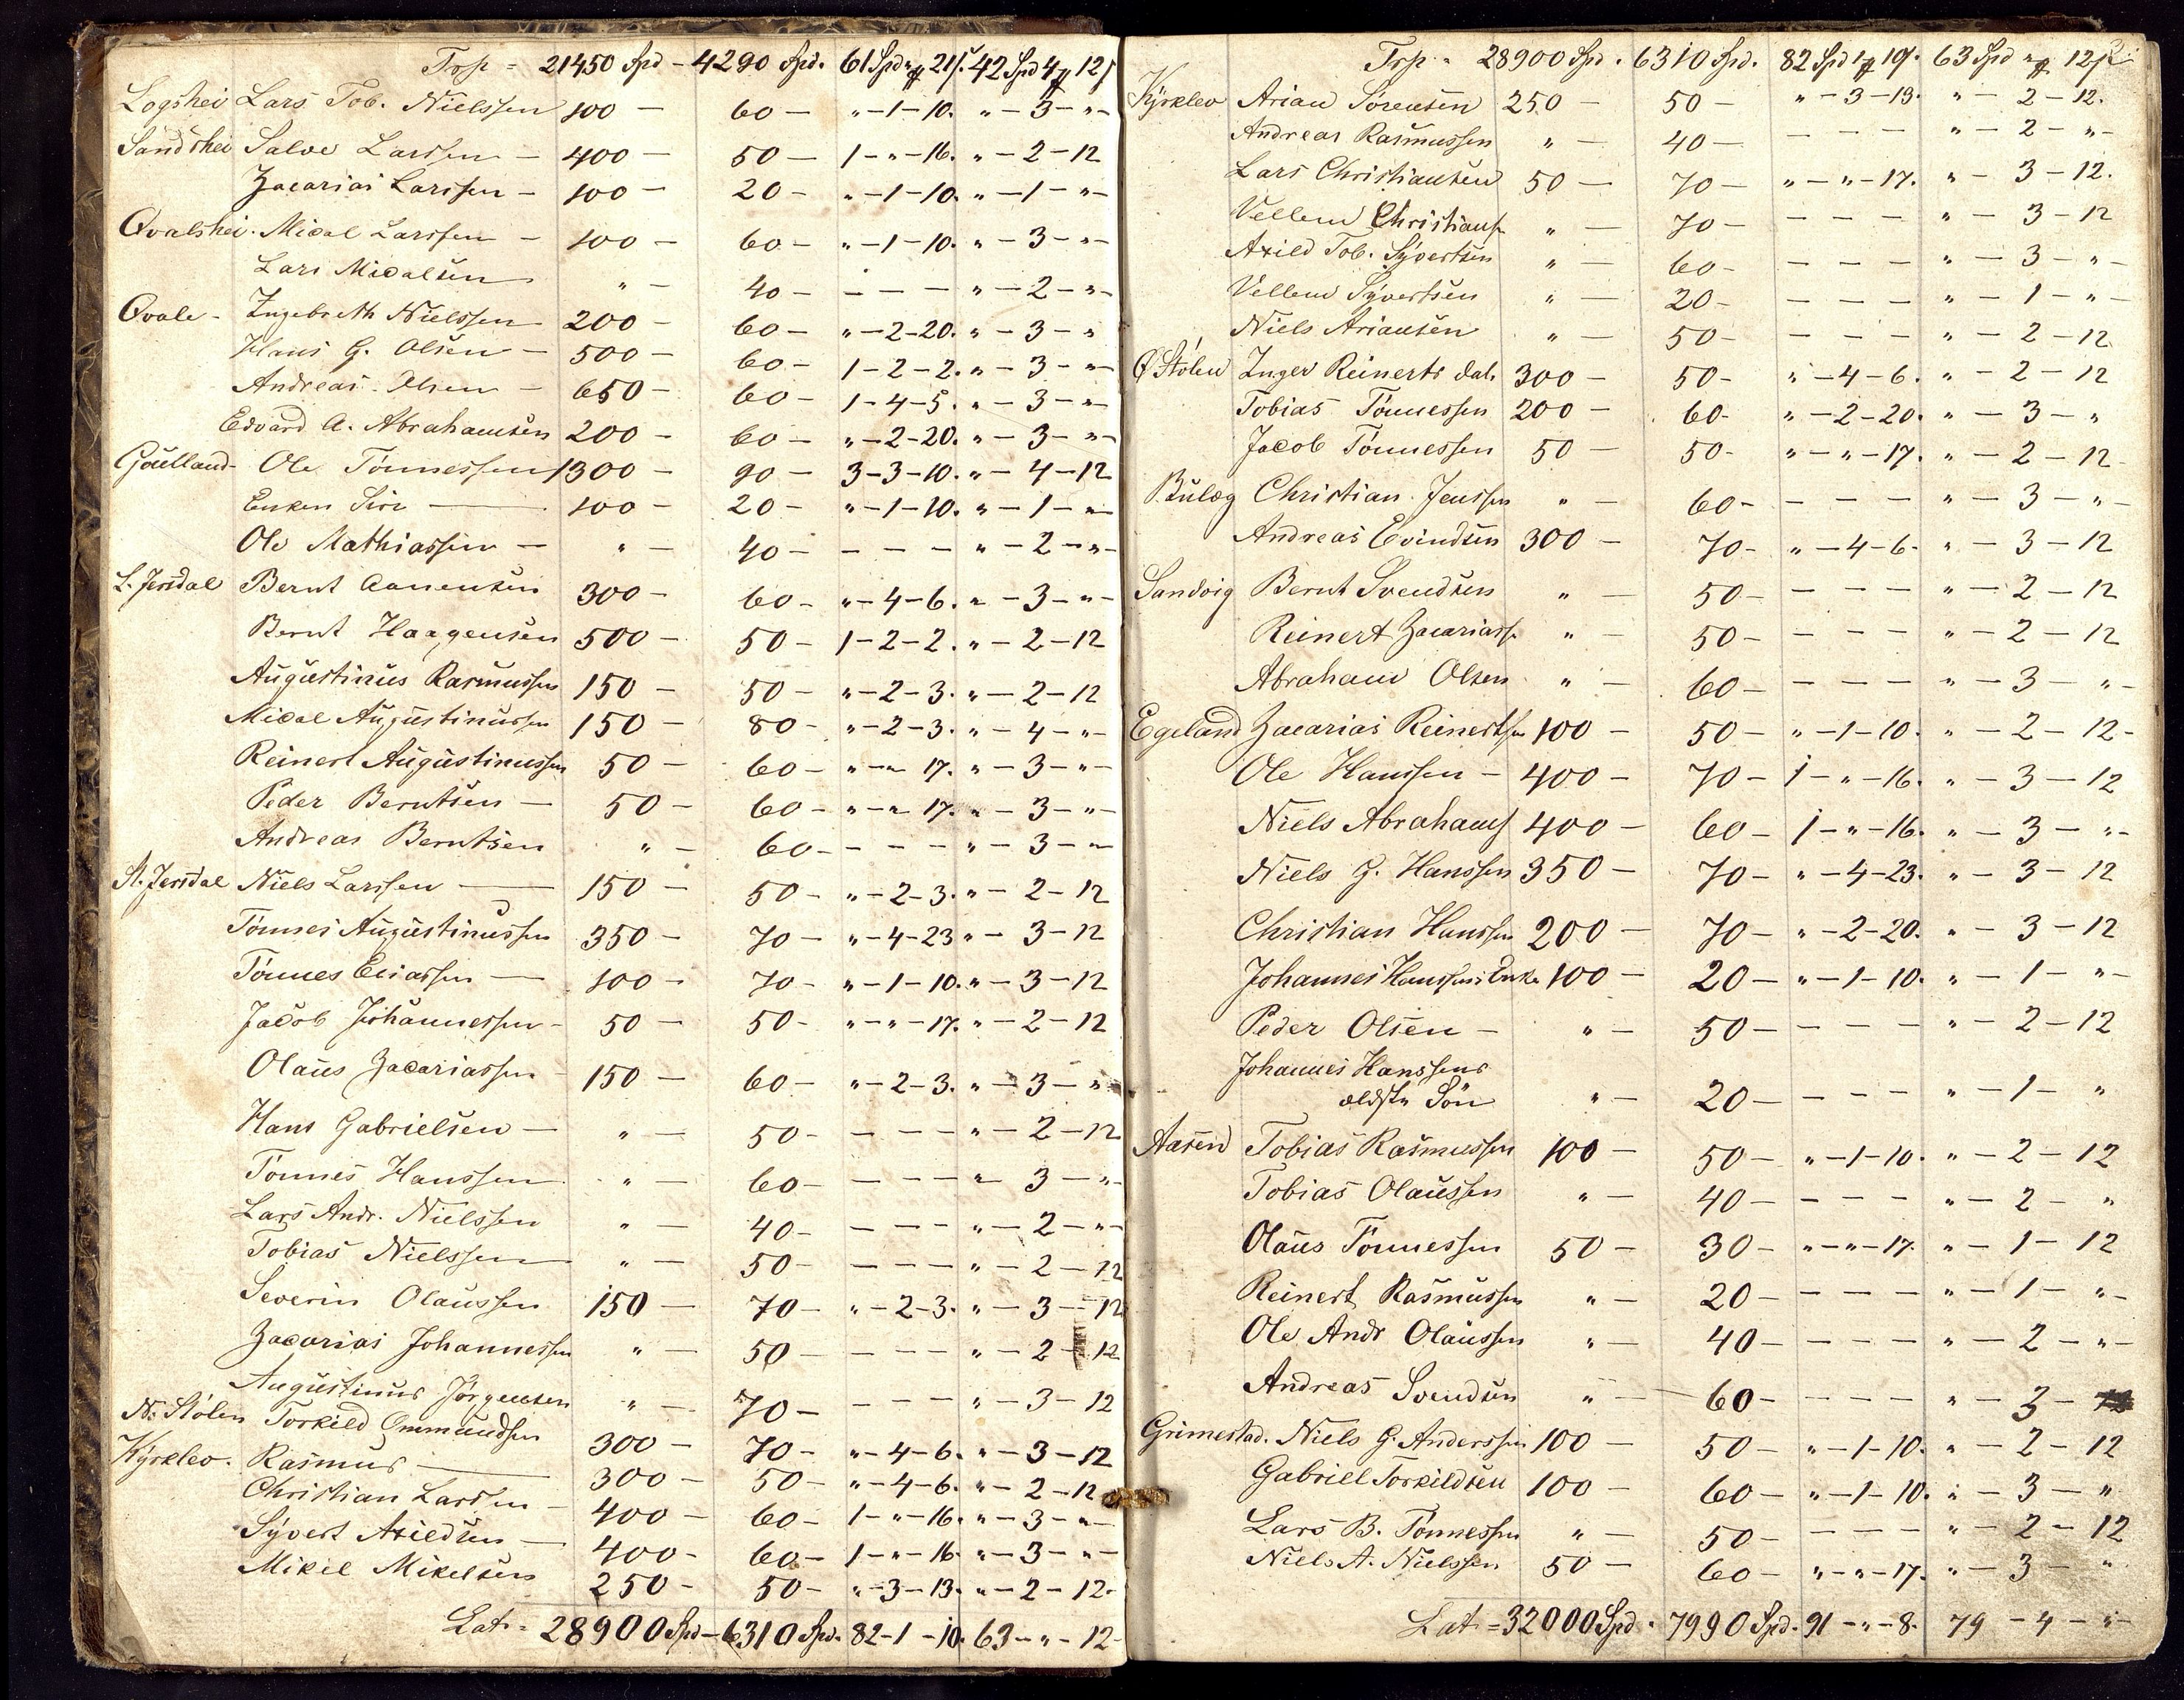 Trsp = 21450 Spd - 4290 Spd. 61 Spd „ 21 42 Spd 4 12
Logshei Lars Tob. Nielssen 100 — 60 — „ - 1 - 10. „ - 3 - „ -
Sandshei Salve Larssen — 400 — 50 — 1 - „ - 16. „ - 2 - 12
Zacarias Larssen — 100 — 20 — „ - 1 - 10. „ - 1 - „ -
Qvalshei. Micael Larssen — 100 — 60 — „ - 1 - 10. „ - 3 - „ -
Lars Micalsen „ — 40 — — — — „ - 2 - „ -
Qvale - Ingebreth Nielssen 200 — 60 — „ - 2 - 20. „ - 3 - „
Hans G. Olsen — 500 — 60 — 1 - 2 - 2. „ - 3 - „ -
Andreas Olsen — 650 — 60 — 1 - 4 - 5. „ - 3 - „ -
Edvard A. Abrahamsen 200 — 60 — „ - 2 - 20. „ - 3 - „ -
Göulland - Ole Tönnessen 1300 — 90 — 3 - 3 - 10. „ - 4 - 12
Enken Siri — 100 — 20 — „ - 1 - 10. „ - 1 - „ -
Ole Mathiassen — „ — 40 — — — — „ - 2 - „ -
L. Jersdal Bernt Aanensen 300 — 60 — „ - 4 - 6. „ - 3 - „ -
Bernt Haagensen 500 — 50 — 1 - 2 - 2. „ - 2 - 12
Augustinus Rasmussen 150 — 50 — „ - 2 - 3. „ - 2 - 12
Micael Augustinussen 150 — 80 — „ - 2 - 3. „ - 4 - „ -
Reinert Augustinussen 50 — 60 — „ - „ 17. „ - 3 - „ -
Peder Berntsen — 50 — 60 — „ - „ 17. „ - 3 - „ -
Andreas Berntsen „ — 60 — — — — „ - 3 - „ -
St. Jersdal Niels Larssen — 150 — 50 — „ - 2 - 3. „ - 2 - 12
Tönnes Augustinussen 350 — 70 — „ - 4 - 23 „ - 3 - 12
Tönnes Eliassen — 100 — 70 — „ - 1 - 10. „ - 3 - 12
Jacob Johannessen — 50 — 50 — „ - „ - 17. „ - 2 - 12
Olaus Zacariassen 150 — 60 — „ - 2 - 3. „ - 3 - „ -
Hans Gabrielsen — „ — 50 — — — — „ - 2 - 12
Tönnes Hanssen „ — 60 — — — — „ 3 - „ -
Lars Andr. Nielssen „ — 40 — — — — „ - 2 - „ -
Tobias Nielssen „ — 50 — — — — „ - 2 - 12
Severin Olaussen 150 — 70 — „ - 2 - 3. „ - 3 - 12
Zacarias Johannessen „ — 50 — — — — „ - 2 - 12
Augustinus Jörgensen „ — 70 — — — — „ - 3 - 12
N. Stölen Torkild Ommundsen 300 — 70 — „ - 4 - 6. „ - 3 - 12
Kyrklev. Rasmus — 300 — 50 — „ - 4 - 6. „ - 2 - 12
Christian Larssen — 400 — 60 — 1 - „ - 16. „ - 3 - „ -
Syvert Axieldsen — 400 — 60 — 1 - „ - 16. „ - 3 - „ -
Mikel Mikelsen 250 — 50 — „ - 3 - 13. „ - 2 - 12.
Lat. = 28900 Spd - 6310 Spd. 82 - 1 - 10. 63 - „ - 12 -
Trsp = 28900 Spd. 6310 Spd. 82 Spd 1 10. 63 Spd „ 12
Kyrklev Arian Sörensen 250 — 50 — „ - 3 - 13. „ - 2 - 12.
Andreas Rasmussen „ — 40 — — — — „ - 2 - „ -
Lars Christiansen 50 — 70 — „ - „ - 17. „ - 3 - 12.
Vellem Christians. „ — 70 — — — — „ - 3 - 12
Axild Tob. Syvertsen „ — 60 — — — — „ - 3 - „ -
Vellem Syvertsen „ — 20 — — — — „ - 1 - „ -
Niels Ariansen „ — 50 — — — — „ - 2 - 12
Ø Stölen Inger Reinerts dat. 300 — 50 — „ - 4 - 6. „ - 2 - 12
Tobias Tönnessen 200 — 60 — „ - 2 - 20. „ - 3 - „
Jacob Tönnessen 50 — 50 — „ - „ - 17. „ - 2 - 12 -
Bulæg Christian Jenssen „ — 60 — — — — „ - 3 - „ -
Andreas Evindsen 300 — 70 — „ - 4 - 6. „ - 3 - 12
Sandvig Bernt Svendsen „ — 50 — — — — „ - 2 - 12
Reinert Zacariass. „ — 50 — — — — „ - 2 - 12
Abraham Olsen „ — 60 — — — — „ - 3 - „ -
Egeland Zacarias Reinertsen 100 — 50 — „ - 1 - 10. „ - 2 - 12 -
Ole Hanssen — 400 — 70 — 1 - „ - 16. „ - 3 - 12
Niels Abrahams 400 — 60 — 1 - „ - 16. „ - 3 - „ -
Niels G. Hanssen 350 — 70 — „ - 4 - 23. „ - 3 - 12
Christian Hanssen 200 — 70 — „ - 2 - 20. „ - 3 - 12
Johannes Hanssens Enke 100 — 20 — „ - 1 - 10. „ - 1 - „ -
Peder Olsen — „ — 50 — — — — „ - 2 - 12
Johannes Hanssens
ældste Sön „ — 20 — — — — „ - 1 - „
Aasen Tobias Rasmussen 100 — 50 — „ - 1 - 10. „ - 2 - 12
Tobias Olaussen „ — 40 — — — — „ - 2 - „
Olaus Tönnessen 50 — 30 — „ - „ - 17. „ - 1 - 12
Reinert Rasmussen „ — 20 — — — — „ - 1 - „ -
Ole Andr Olaussen „ — 40 — — — — „ - 2 - „ -
Andreas Svendsen „ — 60 — — — — „ - 3 -
Grimestad. Niels G. Anderssen 100 — 50 — „ - 1 - 10. „ - 2 - 12
Gabriel Torkildsen 100 — 60 — „ - 1 - 10. „ - 3 - „
Lars B. Tönnessen „ — 50 — — — — „ - 2 - 12
Niels A. Nielssen 50 — 60 — „ - „ - 17. „ - 3 - „
Lat = 32000 Spd. 7990 Spd. 91 - „ - 8. 79 - 4 - „ -